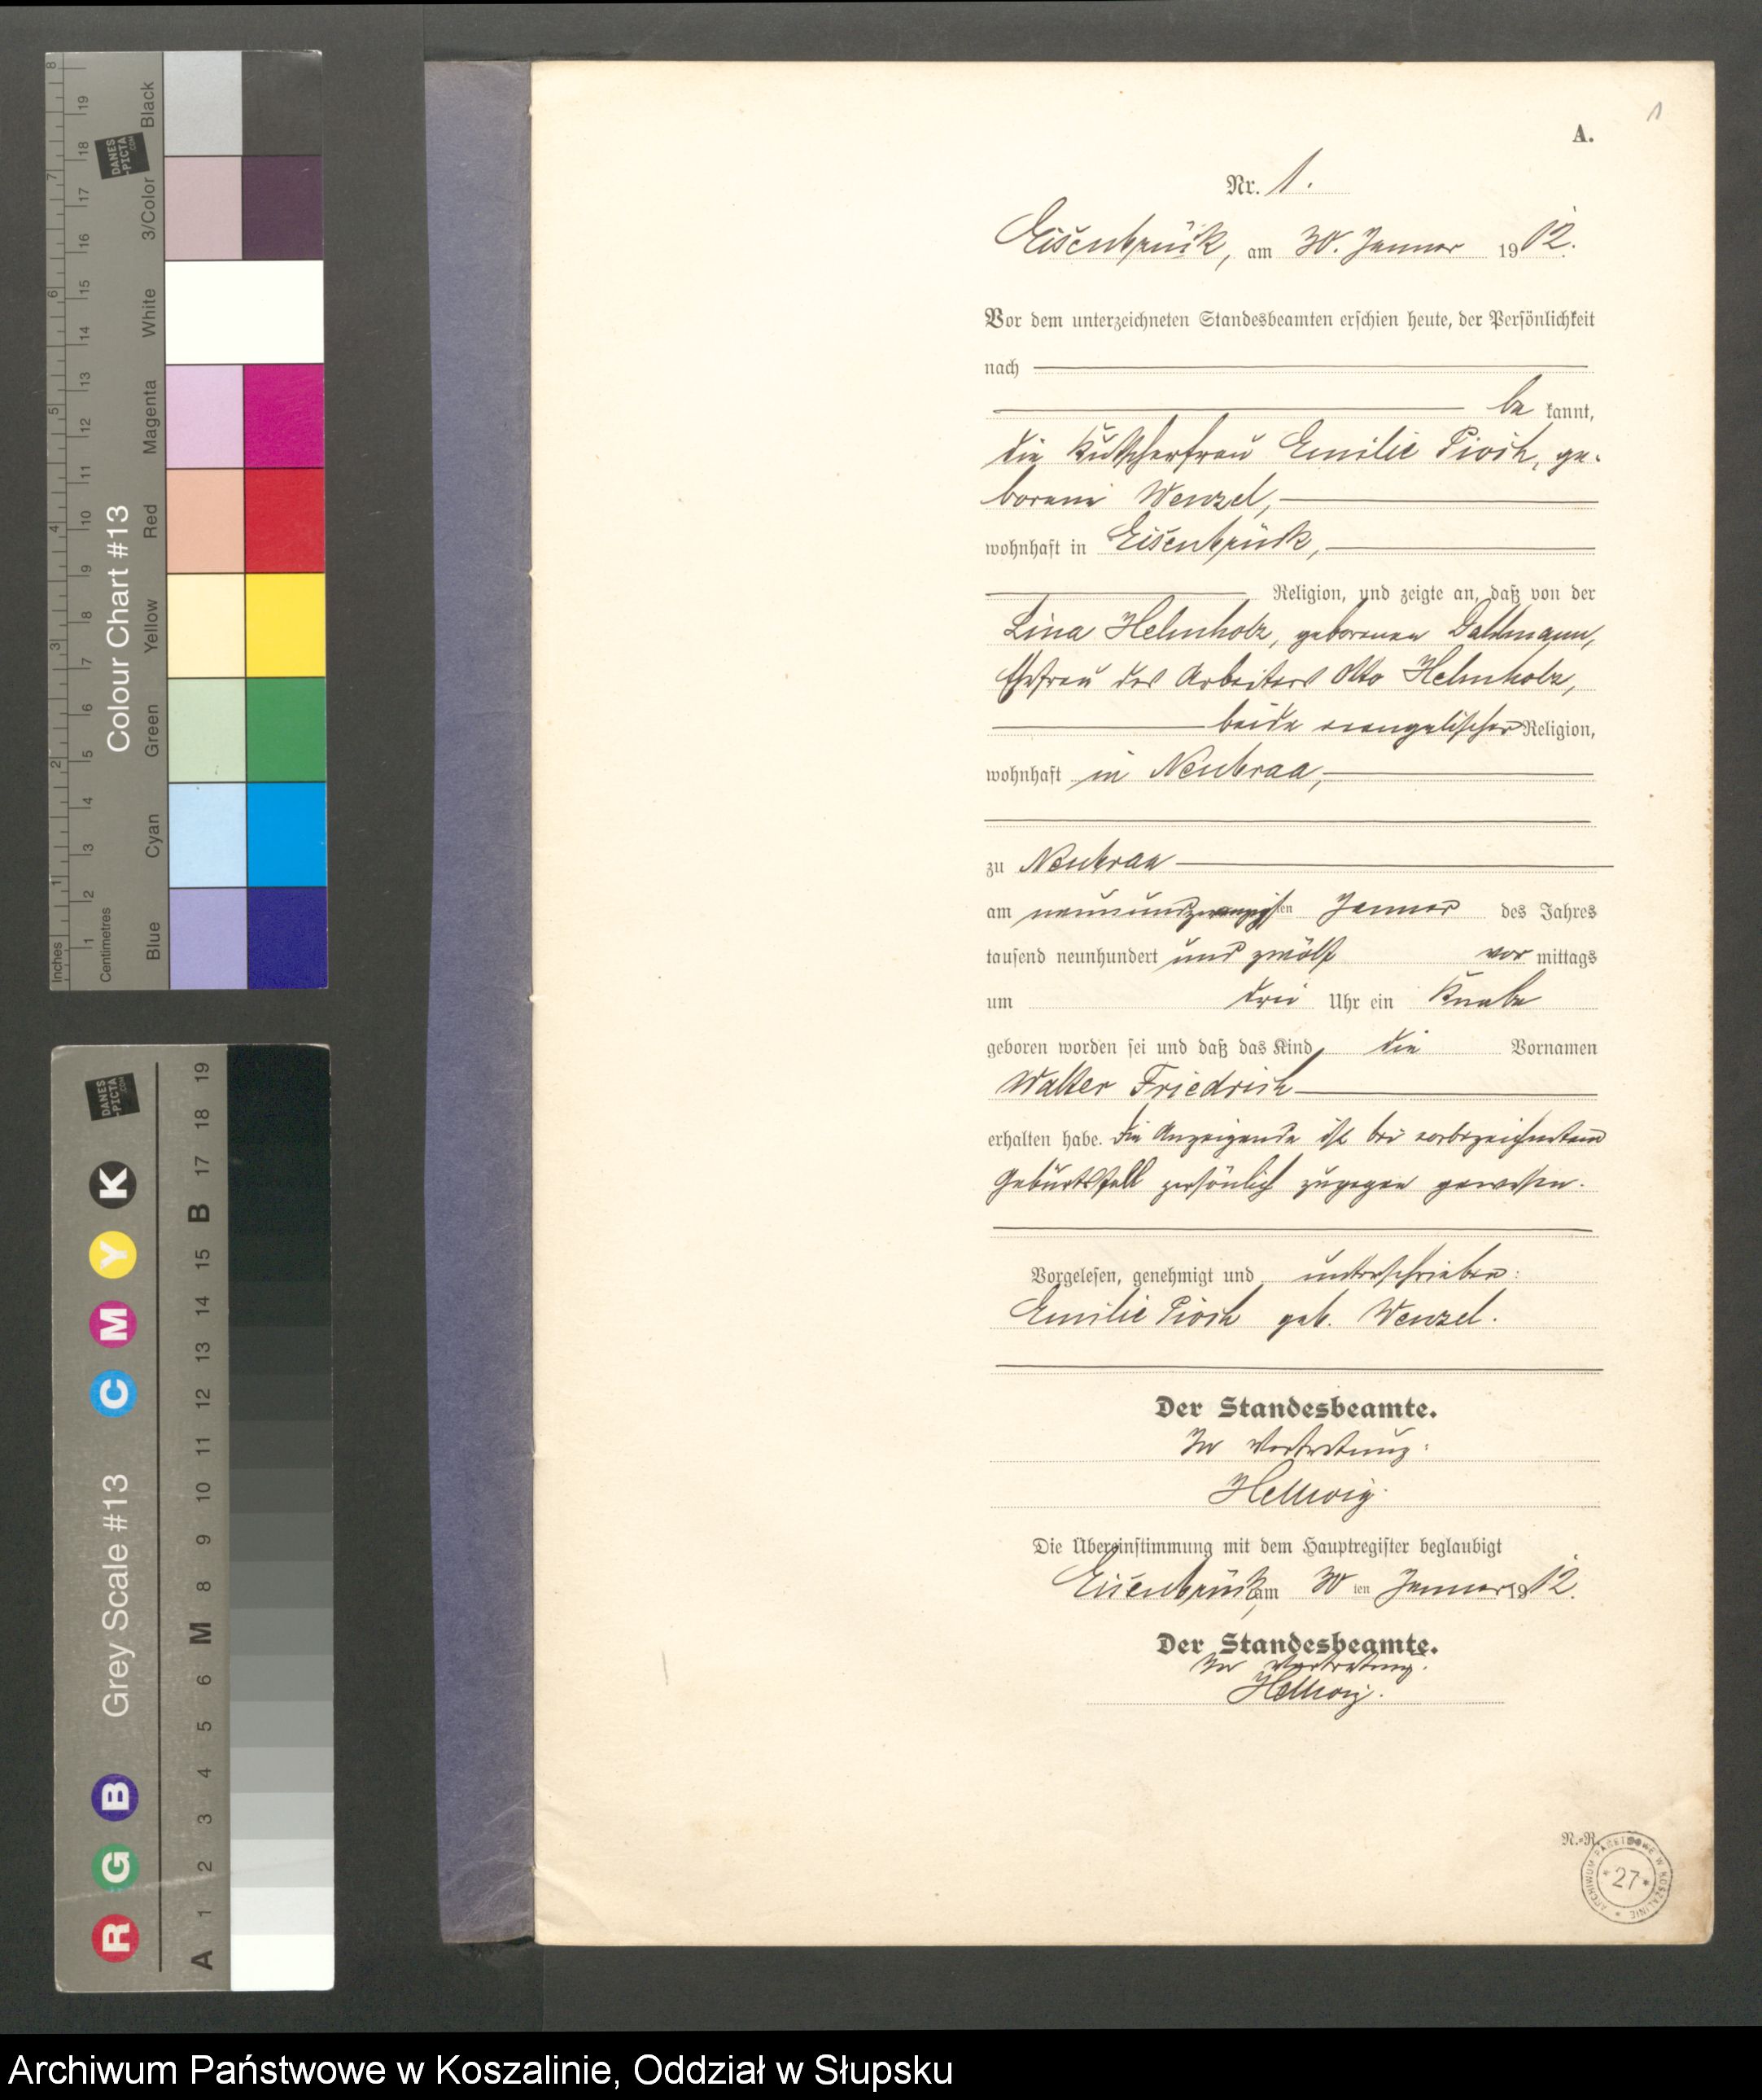 Inches 1 2 3 4 5 6 7 8
Centimetres 1 2 3 4 5 6 7 8 9 10 11 12 13 14 15 16 17 18 19
Colour Chart #13
Blue Cyan Green Yellow Red Magenta White 3/Color Black
DANES
-PICTA
.COM
Grey Scale #13
R G B C M Y K
A 1 2 3 4 5 6 M 8 9 10 11 12 13 14 15 B 17 18 19
DANES
-PICTA
.COM
1
A.
Nr. 1.
Eisenbrück, am 30. Januar 1912.
Vor dem unterzeichneten Standesbeamten erschien heute, der Persönlichkeit
nach
be kannt,
die Kutscherfrau Emilie Pioch, ge-
borene Wenzel,
wohnhaft in Eisenbrück,
Religion, und zeigte an, daß von der
Lina Helmholz, geborenen Dallmann,
Ehefrau des Arbeiters Otto Helmholz,
beide evangelischer Religion,
wohnhaft in Neubraa,
zu Neubraa
am neunundzwanzigsten Januar des Jahres
tausend neunhundert und zwölf vor mittags
um drei Uhr ein Knabe
geboren worden sei und daß das Kind die Vornamen
Walter Friedrich
erhalten habe. Die Anzeigende ist bei vorbezeichnetem
Geburtsfall persönlich zugegen gewesen.
Vorgelesen, genehmigt und unterschrieben:
Emilie Pioch geb. Wenzel.
Der Standesbeamte.
In Vertretung:
Hellwig.
Die Übereinstimmung mit dem Hauptregister beglaubigt
Eisenbrück, am 30 ten Januar 1912.
Der Standesbeamte.
In Vertretung.
Hellwig.
N.-R.
ARCHIWUM PAŃSTWOWE W KOSZALINIE
* 27 *
Archiwum Państwowe w Koszalinie, Oddział w Słupsku